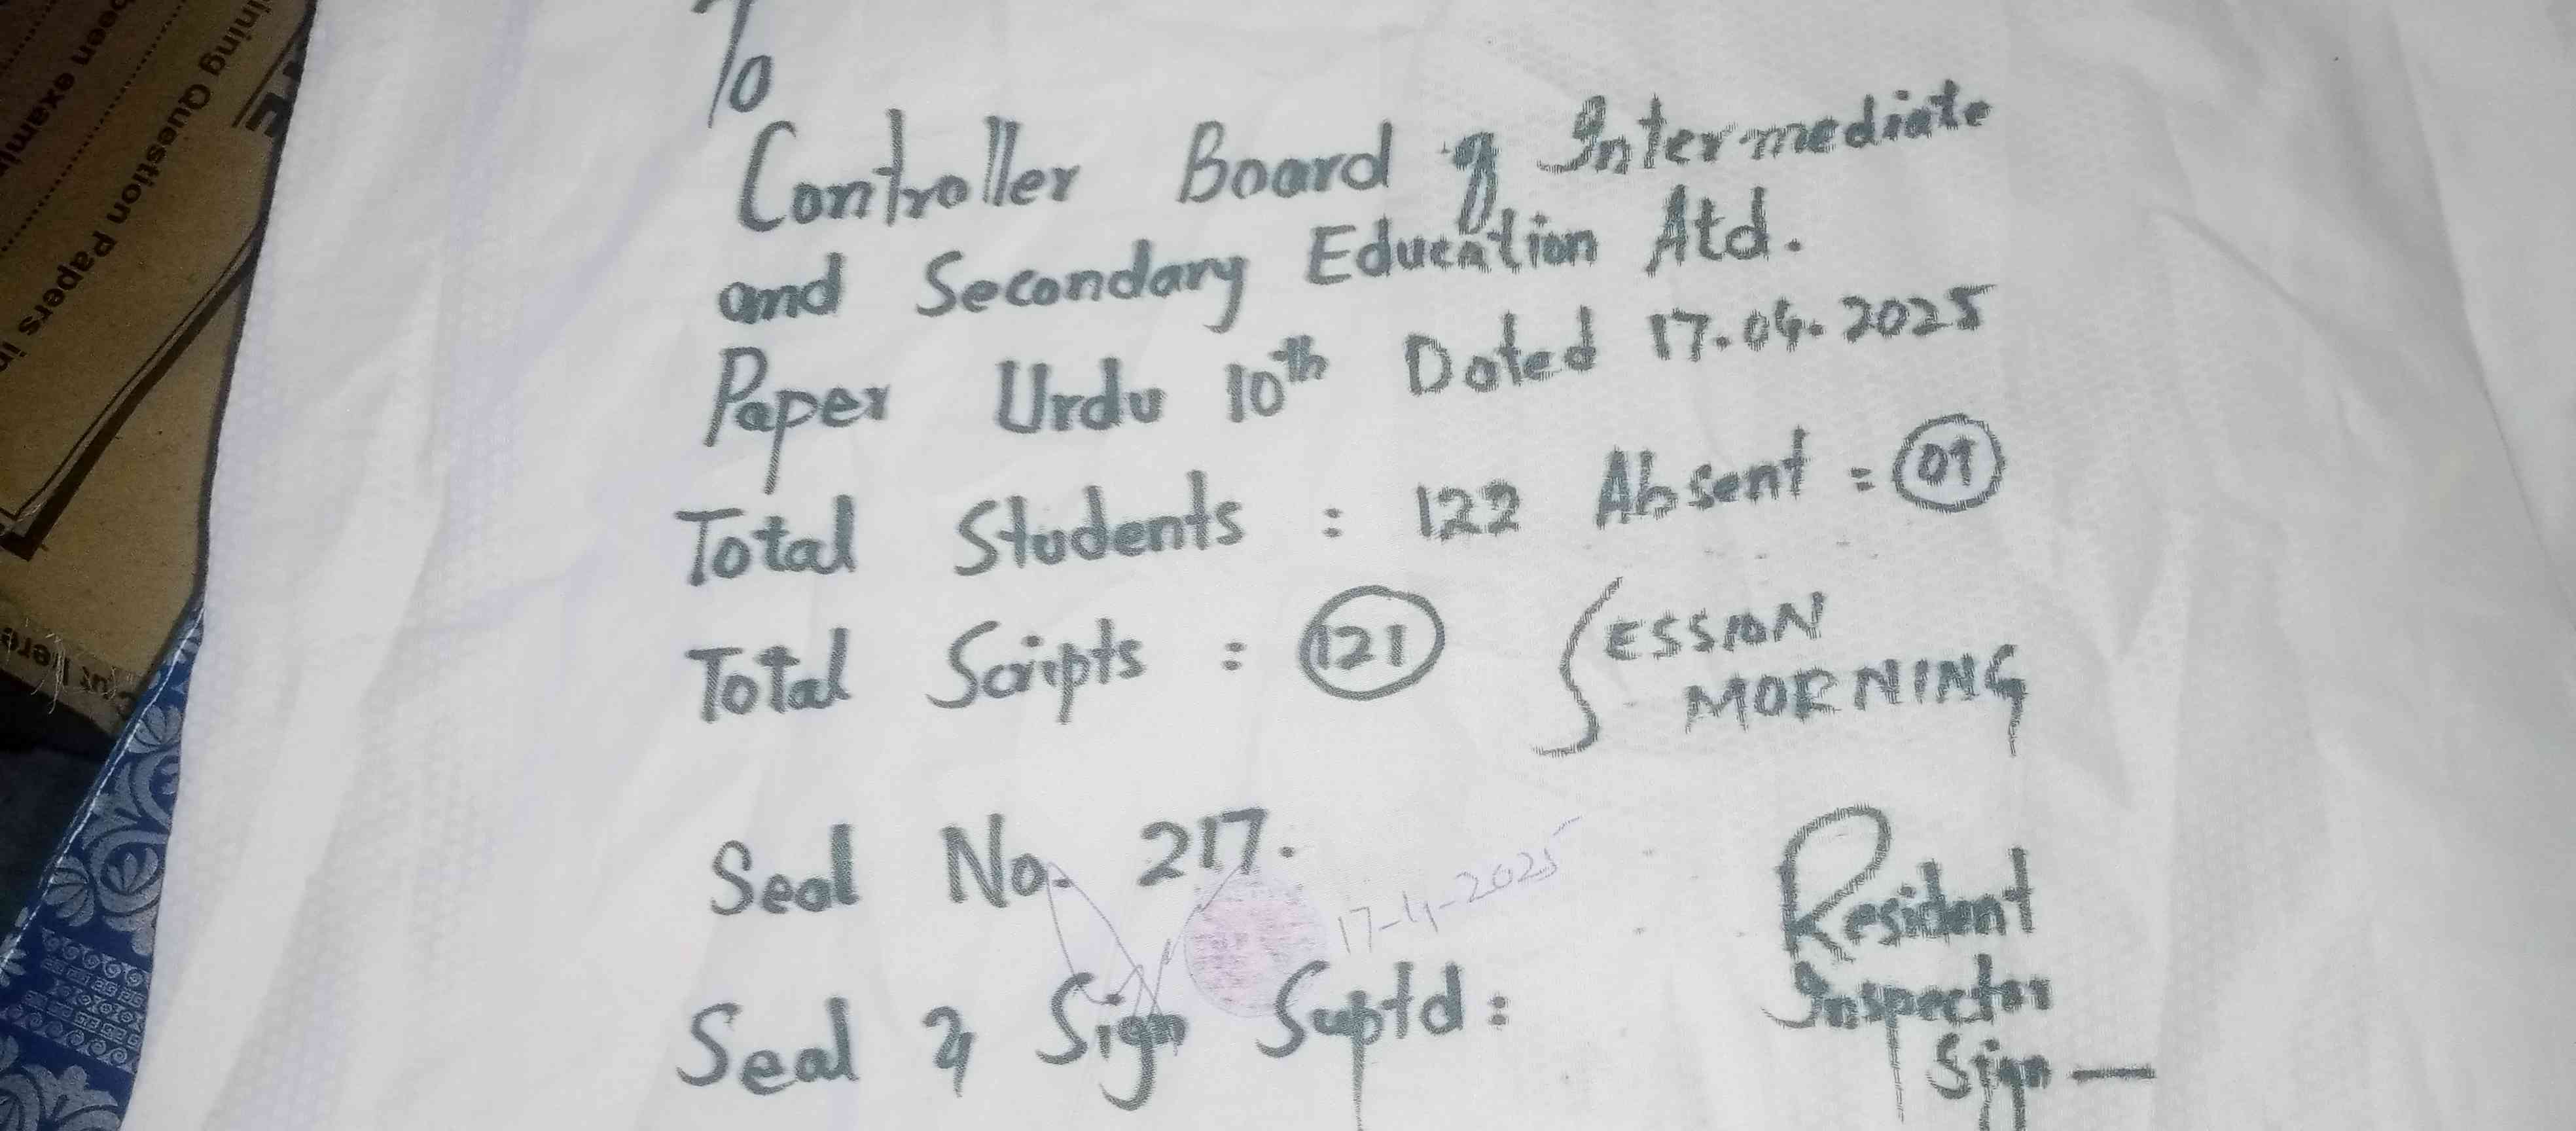 To
Controller Board of Intermediate
and Secondary Education Atd.
Paper Urdu 10th Dated 17.04.2025
Total Students : 122 Absent : 01
Total Scripts : 121 SESSION
MORNING
Seal No. 217.
17-4-2025
Seal & Sign Suptd :
Resident
Inspector
Sign —
ining Question Papers in
een exami
Here